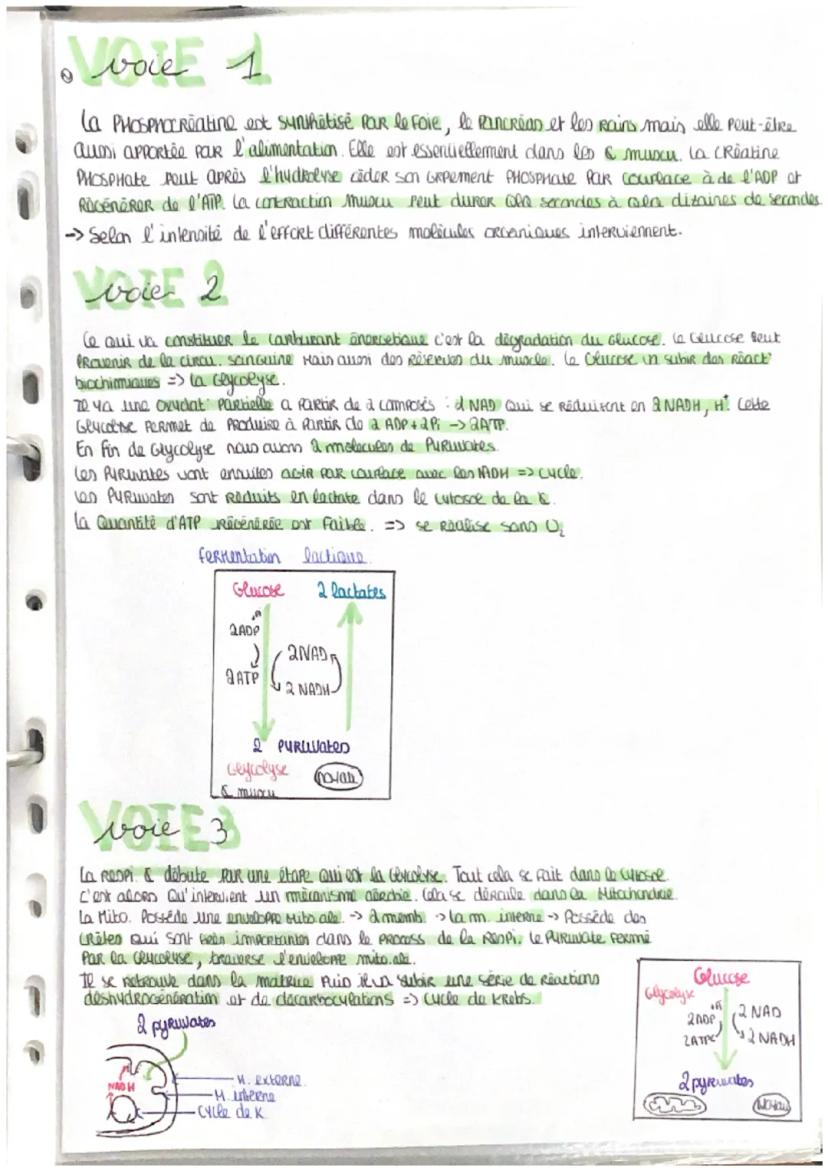 voie 1
La PHOSPHOCRÉATINE est SYNTHÉTISÉ PAR le FOIE, le PANCRÉAS et les RAINS mais elle PEUT-être
aussi APPORTÉE PAR l'alimentation. Elle est essentiellement dans les & muscu. La CRÉATINE
PHOSPHATE PEUT APRÈS l'hydrolyse céder son GRPEMENT PHOSPHATE PAR COUPLAGE à de l'ADP et
RÉGÉNÉRER de l'ATP. La contraction Muscu Peut durer qlq secondes à qlq dizaines de secondes.
-> Selon l'intensité de l'effort différentes molécules organiques interviennent.
voie 2
Ce qui va constituer le carburant énergétique c'est la dégradation du Glucose. Le Glucose Peut
PROVENIR de la circu. sanguine Mais aussi des Réserves du muscle. Le Glucose va subir des Réact°
biochimiques => La Glycolyse.
Il y a une Oxydat° Partielle à Partir de 2 composés : 2 NAD qui se réduiront en 2 NADH, H⁺. Cette
Glycolyse PERMET de Produire à Partir de 2 ADP + 2Pi -> 2ATP.
En Fin de Glycolyse nous avons 2 molécules de PYRUVATES.
Les PYRUVATES vont ensuites AGIR PAR couplage avec les NADH => Cycle.
Les PYRUVATES sont Réduits en lactate dans le cytosol de la &.
La Quantité d'ATP régénérée est Faible. => se Réalise sans O₂
fermentation lactique.
Glucose 2 lactates
+Pi
2ADP
2NAD
2ATP
2 NADH
2 PYRUVATES
Glycolyse
noyau
& muscu
voie 3
La RESPI. & débute PAR une étape qui est la Glycolyse. Tout cela se Fait dans le cytosol.
C'est alors Qu'intervient un mécanisme aérobie. Cela se déroule dans la Mitochondrie
La Mito. Possède une enveloppe mito ale. -> 2 memb -> la m. interne -> Possède des
CRÊTES qui sont très importantes dans le PROCESS de la RESPI. Le PYRUVATE FERMÉ
PAR la Glycolyse, traverse l'enveloppe mito.ale.
Il se retrouve dans la matrice Puis il va subir une série de Réactions
déshydrogénération et de décarboxylations => Cycle de KREBS.
2 pyruvates
NADH
M. externe.
M. interne
Cycle de K
Glucose
Glycolyse
+Pi
2ADP
2 NAD
2ATP
2 NADH
2 pyruvates
Noyau